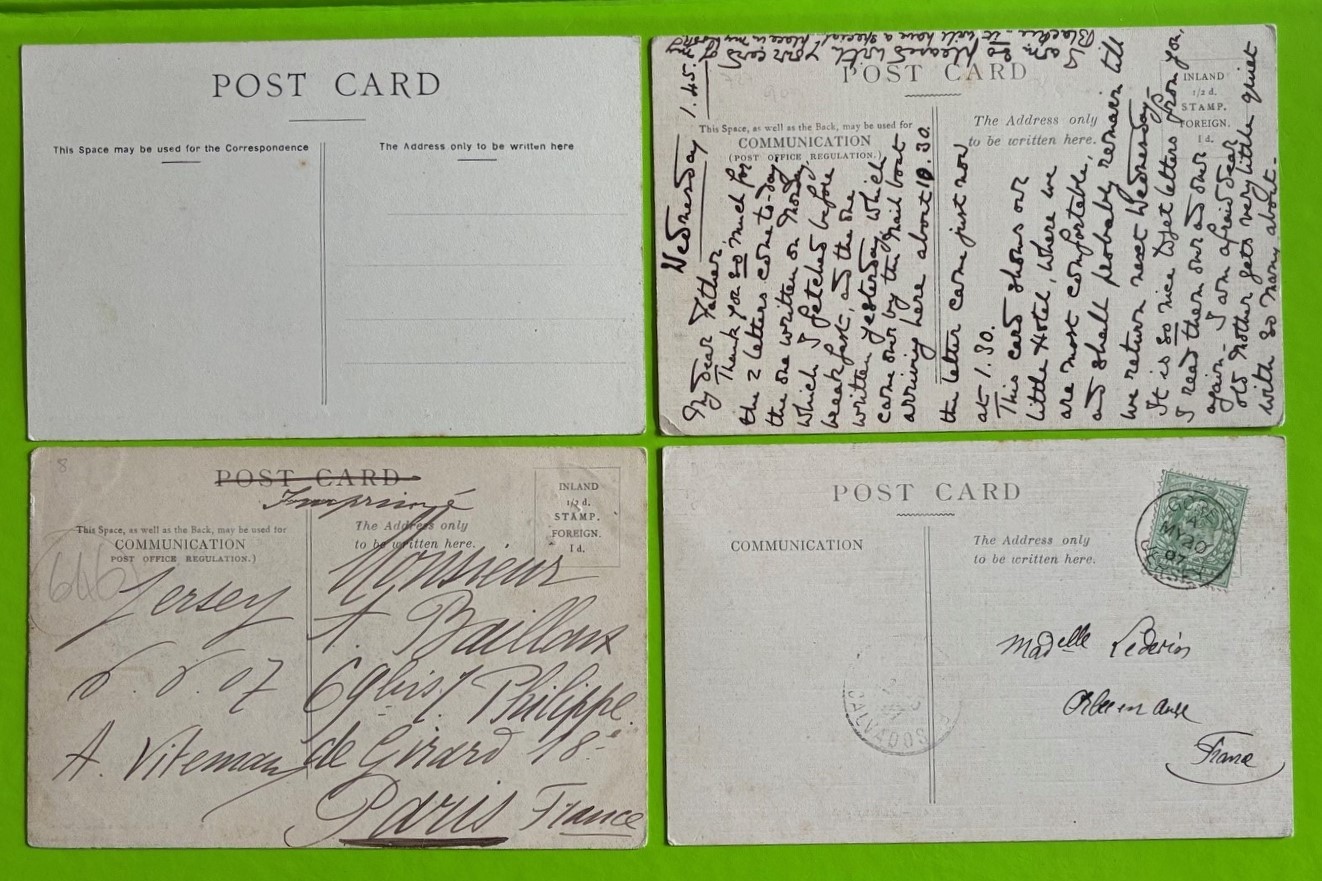 POST CARD
This Space may be used for the Correspondence
The Address only to be written here
1.45.
Wednesday
My dear Father,
Thank you so much for
the 2 letters come to-day
the one written on Monday,
which I fetched before
breakfast, and the one
written yesterday which
came over by the Mail boat
arriving here about 10.30.
the letter came just now
at 1.30.
This card shows our
little Hotel, where we
are most comfortable,
and shall probably remain till
we return next Wednesday-
It is so nice to get letters from you,
I read them over and over
again - I am afraid dear
old Mother gets very little quiet
with so many about-
I am so pleased with your card of my
it will have a special place in my
POST CARD
This Space, as well as the Back, may be used for
COMMUNICATION
(POST OFFICE REGULATION.)
The Address only
to be written here.
INLAND
1/2 d.
STAMP.
FOREIGN.
1 d.
POST CARD
Imprimé
This Space, as well as the Back, may be used for
COMMUNICATION
POST OFFICE REGULATION.)
The Address only
to be written here.
INLAND
1/2 d.
STAMP.
FOREIGN.
1 d.
646
8
Jersey
6.6.07
Monsieur
A.
Philippe
de Girard 18
Paris France
POST CARD
COMMUNICATION
The Address only
to be written here.
MY 20
07
CALVADOS
Madelle
France